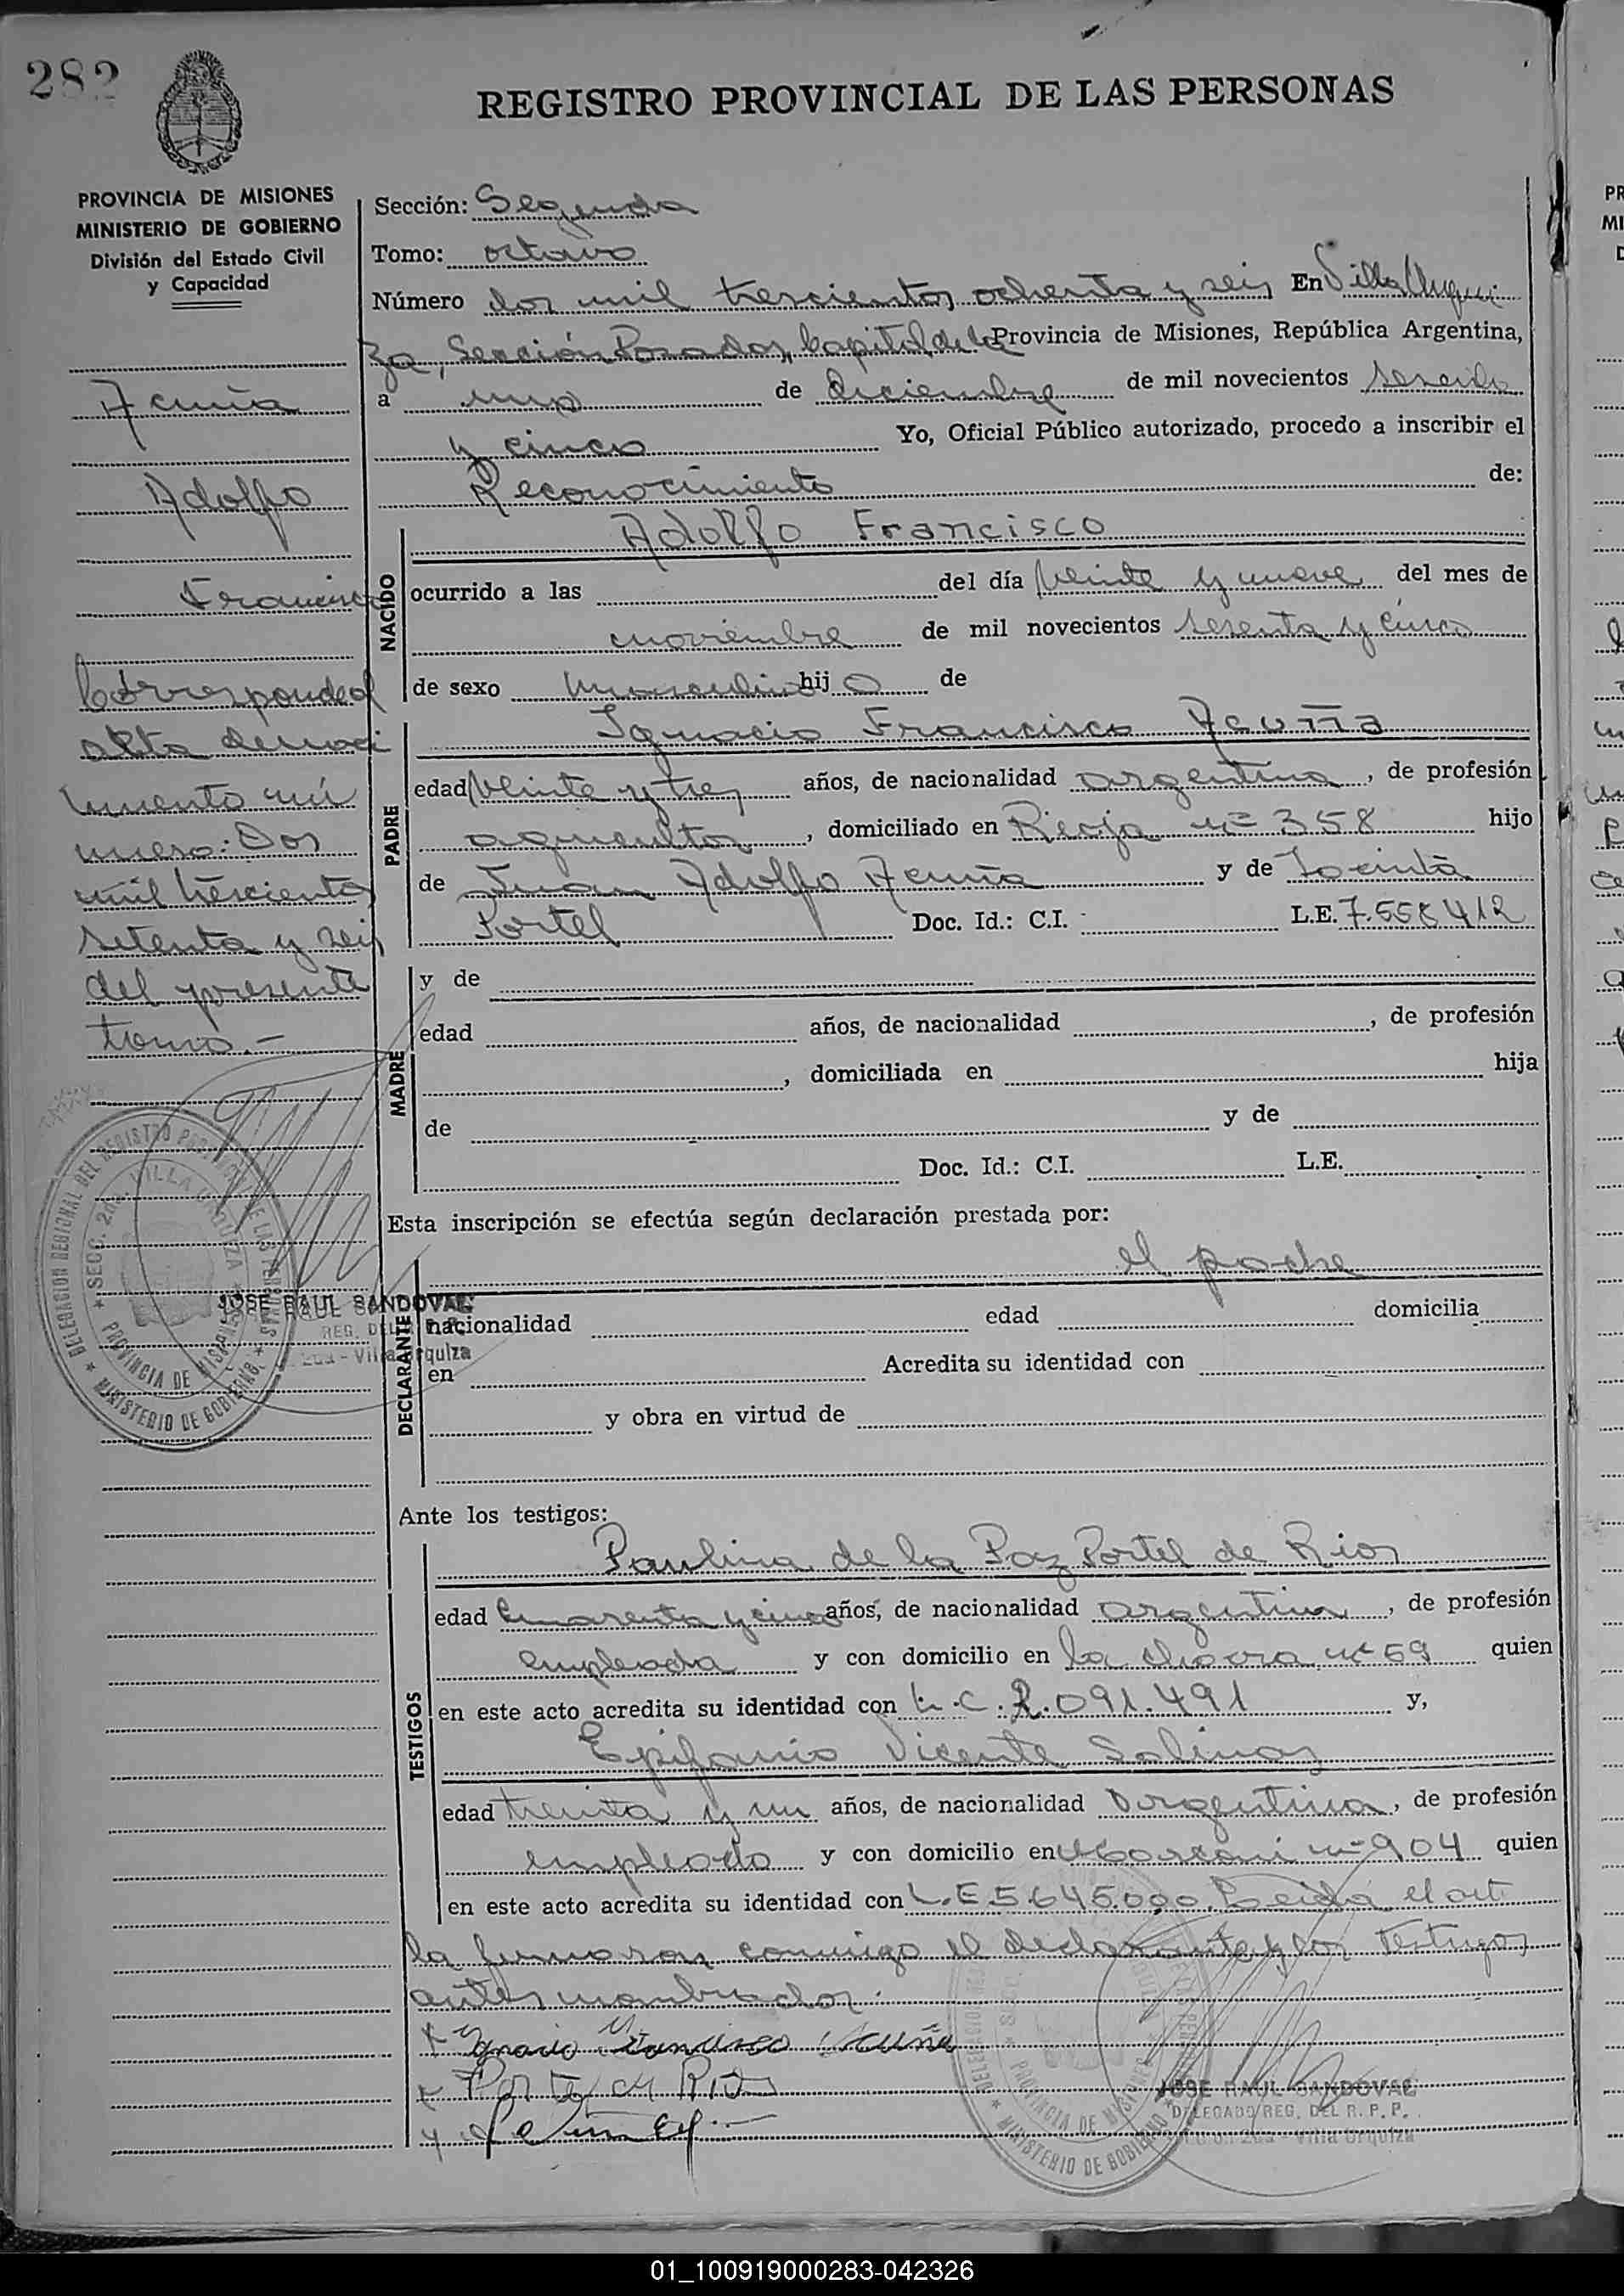 282
REGISTRO PROVINCIAL DE LAS PERSONAS
PROVINCIA DE MISIONES
MINISTERIO DE GOBIERNO
División del Estado Civil
y Capacidad
Acuña
Adolfo
Francisco
Corresponde al
akta denaci
miento nú
mero: Dos
mil trescientos
setenta y seis
del presente
tomo.-
Sección: Segunda
Tomo: octavo
Número dos mil trescientos ochenta y seis En Villa Urqui
za, Sección Posadas, Capital de la Provincia de Misiones, República Argentina,
a uno de diciembre de mil novecientos sesenta
y cinco Yo, Oficial Público autorizado, procedo a inscribir el
Reconocimiento de:
NACIDO
Adolfo Francisco
ocurrido a las del día veinte y nueve del mes de
noviembre de mil novecientos sesenta y cinco
de sexo masculino hij o de
PADRE
Ignacio Francisco Acuña
edad veinte y tres años, de nacionalidad argentina, de profesión
agricultor, domiciliado en Rioja nº 358 hijo
de Juan Adolfo Acuña y de Jacinta
Portel Doc. Id.: C.I. L.E. 7.558.412
MADRE
y de
edad años, de nacionalidad , de profesión
, domiciliada en hija
de y de
Doc. Id.: C.I. L.E.
Esta inscripción se efectúa según declaración prestada por:
DECLARANTE
el padre
nacionalidad edad domicilia
en Acredita su identidad con
y obra en virtud de
Ante los testigos:
TESTIGOS
Paulina de la Paz Portel de Rios
edad cuarenta y cinco años, de nacionalidad argentina, de profesión
empleada y con domicilio en La nº 69 quien
en este acto acredita su identidad con L.C. 2.091.491 y,
Epifanio Vicente Salinas
edad treinta y un años, de nacionalidad argentina, de profesión
empleado y con domicilio en nº 904 quien
en este acto acredita su identidad con L.E 5.645.090. Leida el act
la firmaron conmigo el declarante y los testigos
antes nombrados.
Ignacio Francisco Acuña
Portel de Rios
DELEGACION REGIONAL DEL REGISTRO PROVINCIAL DE LAS PERSONAS
SECC. 2da. VILLA URQUIZA
PROVINCIA DE MISIONES
MINISTERIO DE GOBIERNO
JOSE RAUL SANDOVAL
JOSE RAUL SANDOVAL
DELEGADO REG. DEL R. P. P.
2da - Villa Urquiza
01_100919000283-042326